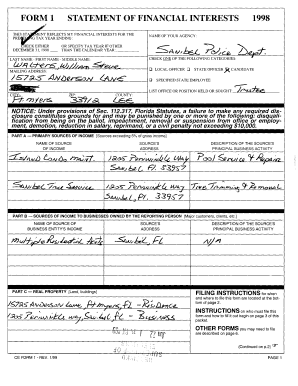 FORM 1 STATEMENT OF FINANCIAL INTERESTS 1998
THIS STATEMENT REFLECTS MY FINANCIAL INTERESTS FOR THE PRECEDING TAX YEAR ENDING:
CHECK EITHER OR SPECIFY TAX YEAR IF OTHER
DECEMBER 31, 1998 THAN THE CALENDAR YEAR
NAME OF YOUR AGENCY:
Sanibel Police Dept
LAST NAME - FIRST NAME - MIDDLE NAME
Walters, William Steve
CHECK ONE OF THE FOLLOWING CATEGORIES:
LOCAL OFFICER STATE OFFICER CANDIDATE
MAILING ADDRESS
15725 ANDERSON LANE
SPECIFIED STATE EMPLOYEE
LIST OFFICE OR POSITION HELD OR SOUGHT:
Trustee
CITY: ZIP: COUNTY:
Ft Myers 33912 LEE
NOTICE: Under provisions of Sec. 112.317, Florida Statutes, a failure to make any required disclosure constitutes grounds for and may be punished by one or more of the following: disqualification from being on the ballot, impeachment, removal or suspension from office or employment, demotion, reduction in salary, reprimand, or a civil penalty not exceeding $10,000.
PART A -- PRIMARY SOURCES OF INCOME (Sources exceeding 5% of gross income)
NAME OF SOURCE OF INCOME SOURCE'S ADDRESS DESCRIPTION OF THE SOURCE'S PRINCIPAL BUSINESS ACTIVITY
Island Condo Maint. 1205 Periwinkle Way Pool Service & Repairs
Sanibel, Fl. 33957
Sanibel Tree Service 1205 Periwinkle Way, Tree Trimming & Removal
Sanibel, Fl. 33957
PART B -- SOURCES OF INCOME TO BUSINESSES OWNED BY THE REPORTING PERSON (Major customers, clients, etc.)
NAME OF SOURCE OF BUSINESS ENTITY'S INCOME SOURCE'S ADDRESS DESCRIPTION OF THE SOURCE'S PRINCIPAL BUSINESS ACTIVITY
Multiple Residential Accts Sanibel, FL N/A
PART C -- REAL PROPERTY (Land, buildings)
15725 Anderson Lane, Ft Myers, Fl - Residence
1205 Periwinkle Way, Sanibel Fl - Business
FILING INSTRUCTIONS for when and where to file this form are located at the bottom of page 2.
INSTRUCTIONS on who must file this form and how to fill it out begin on page 3.
OTHER FORMS you may need to file are described on page 6.
(Continued on p.2)
CE FORM 1 - REV. 1/99 PAGE 1